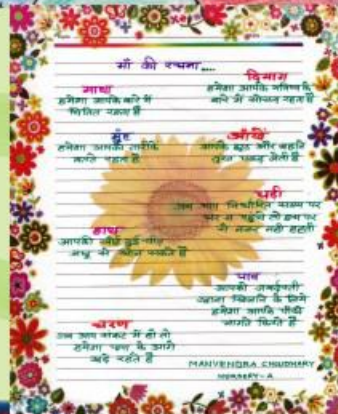 माँ की रचना....
माथा
हमेशा आपके बारे में
चिंतित रहता है
दिमाग
हमेशा आपके भविष्य के
बारे में सोचता रहता है
मुँह
हमेशा आपकी तारीफ
करते रहता है
आँखें
आपके झूठ और
तुरंत पकड़ लेती है
घड़ी
जब आप निर्धारित समय पर
घर न पहुंचे तो इस पर
से नजर नहीं हटती
हाथ
आपकी खोई हुई चीज
से खोज सकते हैं
पाव
आपको जबर्दस्ती
खाना खिलाने के लिये
हमेशा आपके पीछे
भागते फिरते हैं
चरण
जब आप संकट में हो तो
हमेशा के आगे
खड़े रहते हैं
MANVENDRA CHOUDHARY
NURSERY-A